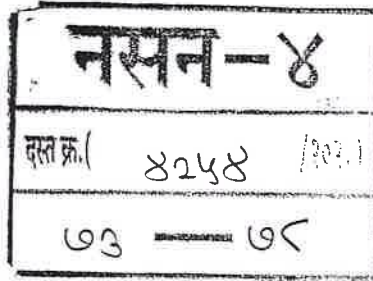 नसन-४
दस्त क्र.( ४२५४
७३ — ७८